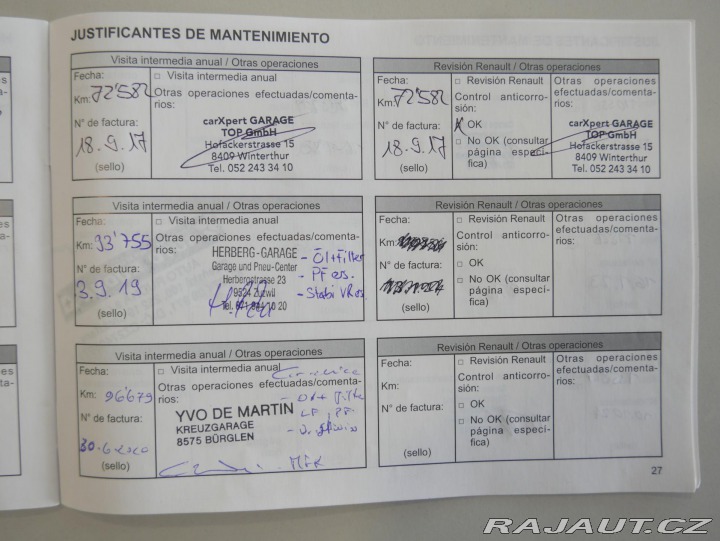 JUSTIFICANTES DE MANTENIMIENTO
Visita intermedia anual / Otras operaciones
Fecha:
□ Visita intermedia anual
Km: 72'582
Otras operaciones efectuadas/comenta-
rios:
N° de factura:
18.9.17
(sello)
carXpert GARAGE
TOP GmbH
Hofackerstrasse 15
8409 Winterthur
Tel. 052 243 34 10
Revisión Renault / Otras operaciones
Fecha:
□ Revisión Renault
Km: 72'582
Control anticorro-
sión:
N° de factura:
X OK
18.9.17
□ No OK (consultar
página específi-
fica)
(sello)
Otras operaciones
efectuadas/comenta-
rios:
carXpert GARAGE
TOP GmbH
Hofackerstrasse 15
8409 Winterthur
Tel. 052 243 34 10
Visita intermedia anual / Otras operaciones
Fecha:
□ Visita intermedia anual
Km: 93'755
Otras operaciones efectuadas/comenta-
rios:
N° de factura:
3.9.19
(sello)
HERBERG-GARAGE
Garage und Pneu-Center
Herbergstrasse 23
9524 Zuzwil
- Öl+Filter
- PF es.
- Stabi VR es.
Revisión Renault / Otras operaciones
Fecha:
□ Revisión Renault
Km:
Control anticorro-
sión:
N° de factura:
□ OK
□ No OK (consultar
página especí-
fica)
(sello)
Otras operaciones
efectuadas/comenta-
rios:
Visita intermedia anual / Otras operaciones
Fecha:
□ Visita intermedia anual
Km: 96'679
Otras operaciones efectuadas/comenta-
rios:
N° de factura:
30.6.2020
(sello)
YVO DE MARTIN
KREUZGARAGE
8575 BÜRGLEN
MFK
Revisión Renault / Otras operaciones
Fecha:
□ Revisión Renault
Km:
Control anticorro-
sión:
N° de factura:
□ OK
□ No OK (consultar
página especí-
fica)
(sello)
Otras operaciones
efectuadas/comenta-
rios:
27
RAJAUT.CZ